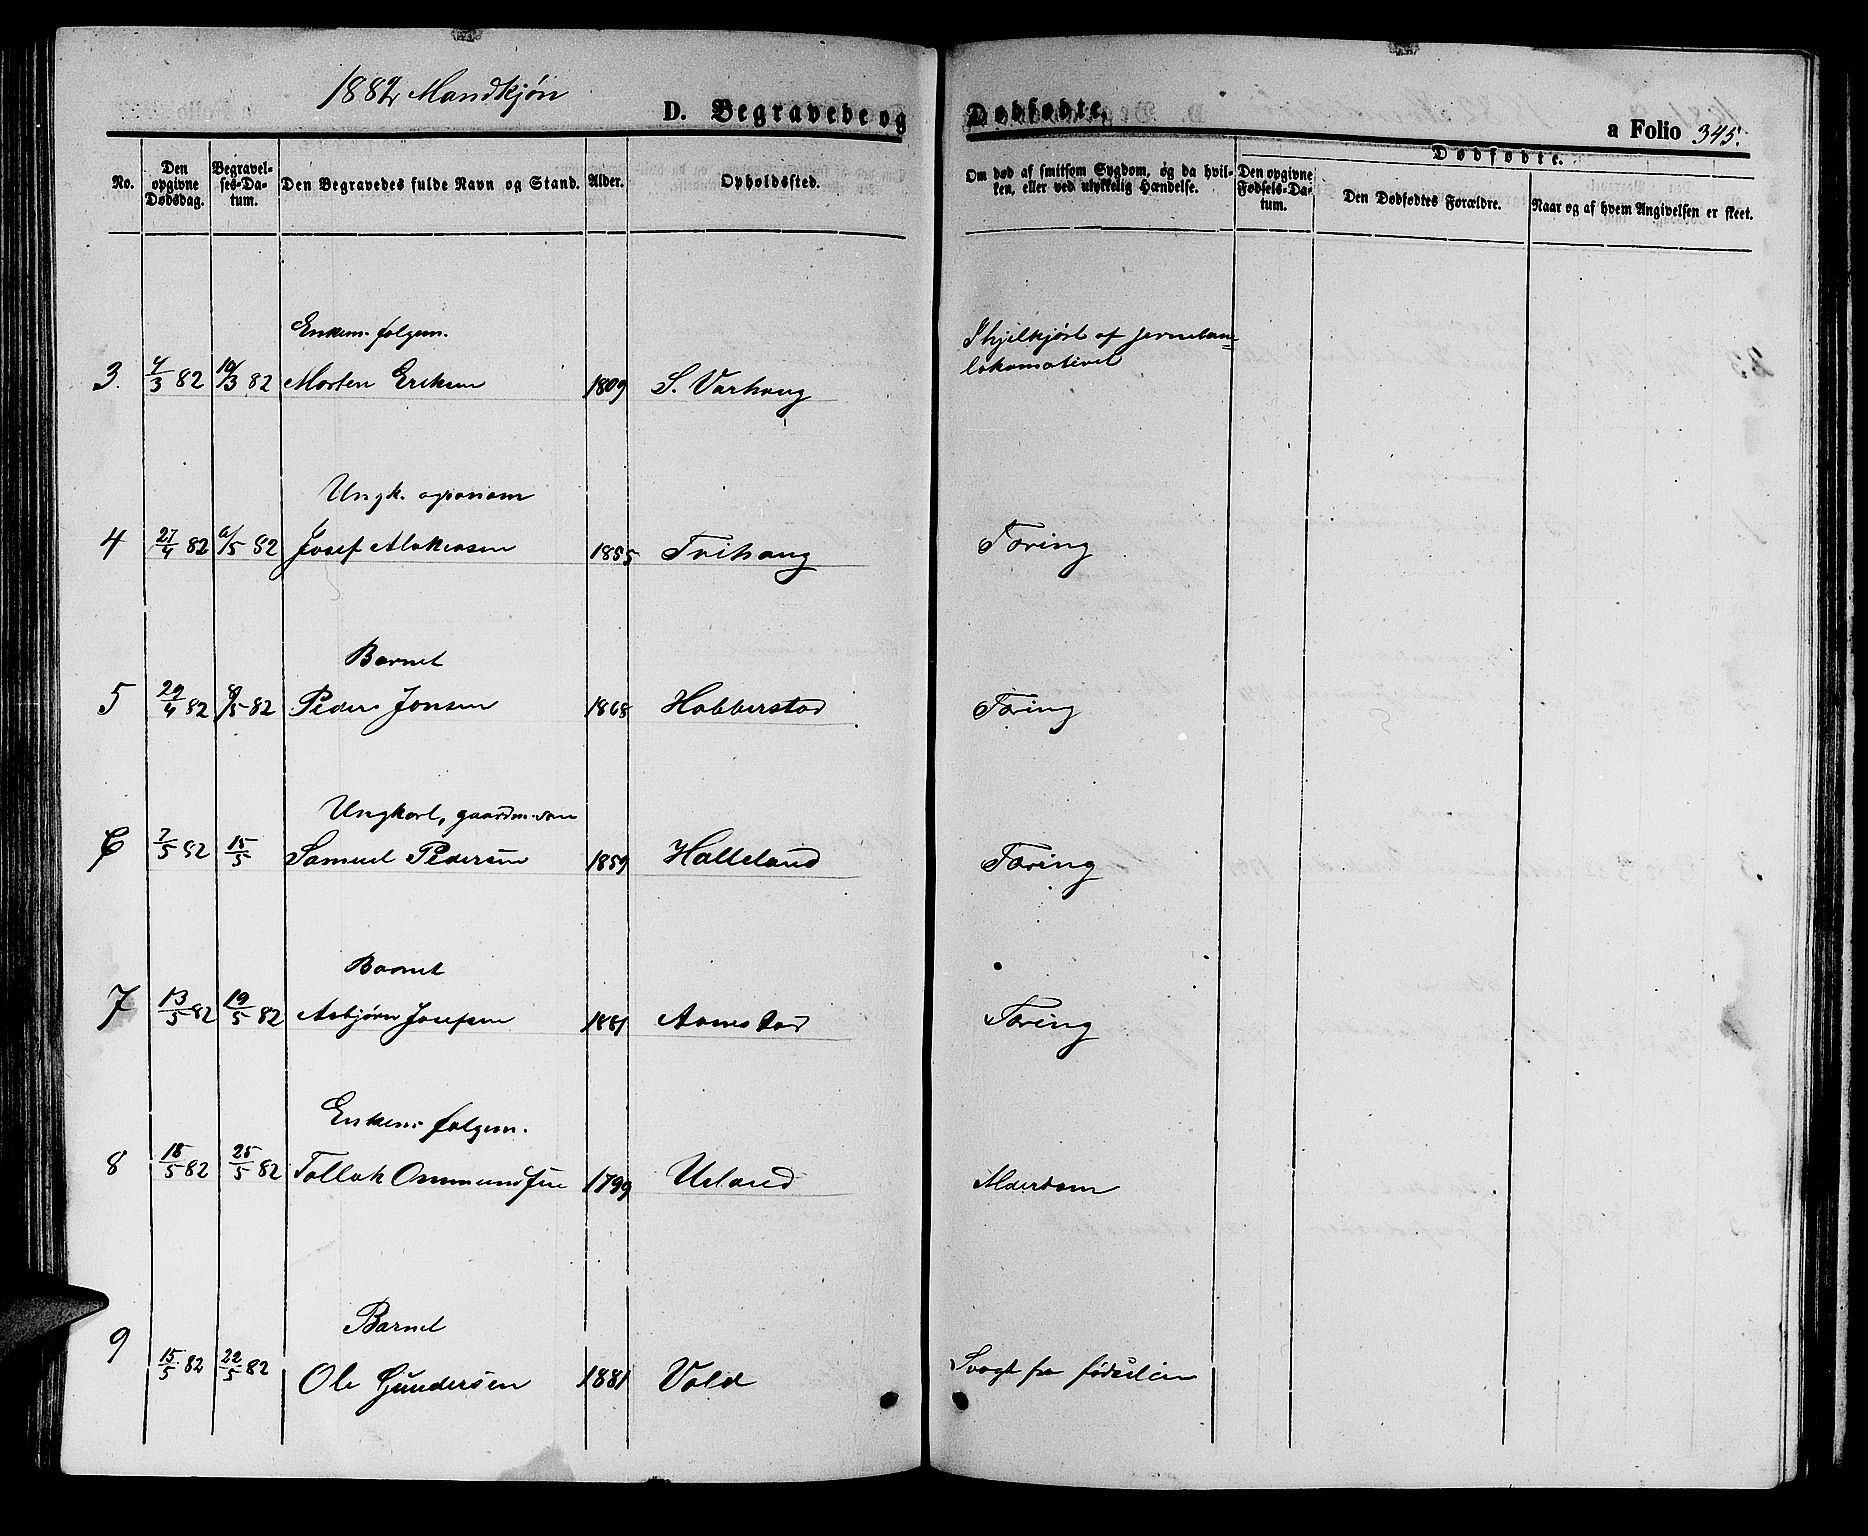 1882 Mandkjøn
D. Begravede og Dødfødte.
a Folio 345.
No.
Den opgivne Dødsdag.
Begravelses-Datum.
Den Begravedes fulde Navn og Stand.
Alder.
Opholdssted.
Om død af smitsom Sygdom, og da hvilken, eller ved ulykkelig Hændelse.
Dødfødte.
Den opgivne Fødsels-Datum.
Den Dødfødtes Forældre.
Naar og af hvem Angivelsen er skeet.
Enkem. folgem.
3. 4/3 82 10/3 82 Morten Eriksen 1809 S. Varhoug
Ihjelkjørt af jernban=
lokomotivet
Ungk. agronom
4 27/4 82 6/5 82 Josef 1855 Tvihoug Tæring
Barnet
5 29/4 82 8/5 82 Peder Jonsen 1868 Hobberstad Tæring
Ungkarl, gaardm. søn
6 7/5 82 15/5 Samuel Pedersen 1859 Halleland Tæring
Barnet
7 13/5 82 19/5 82 Asbjørn Josefsen 1881 Aanestad Tæring
Enkem. folgem.
8 18/5 82 25/5 82 Tollak Ommundsen 1799 Ueland Alderdom
Barnet
9 15/5 82 22/5 82 Ole Gundersen 1881 Vold Svagt fra fødselen